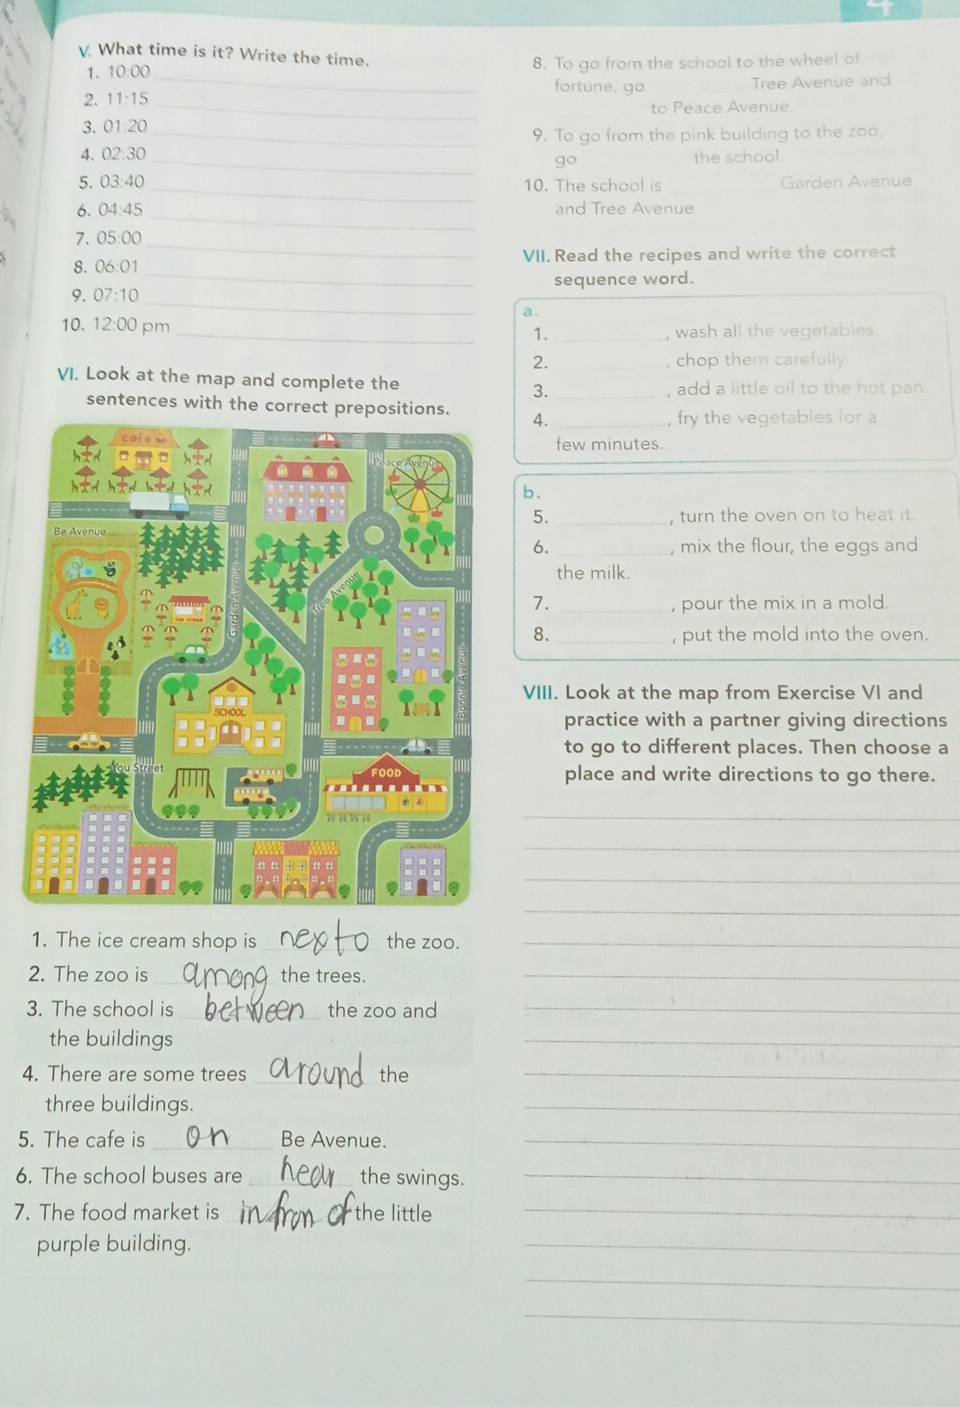 4
V. What time is it? Write the time.
1. 10:00
2. 11:15
3. 01:20
4. 02:30
5. 03:40
6. 04:45
7. 05:00
8. 06:01
9. 07:10
10. 12:00 pm
VI. Look at the map and complete the
sentences with the correct prepositions.
cafe
Peace Avenue
Be Avenue
Garden Avenue
Tree Avenue
SCHOOL
You Street
FOOD
1. The ice cream shop is next to the zoo.
2. The zoo is among the trees.
3. The school is between the zoo and
the buildings
4. There are some trees around the
three buildings.
5. The cafe is on Be Avenue.
6. The school buses are near the swings.
7. The food market is in fron of the little
purple building.
8. To go from the school to the wheel of
fortune, go Tree Avenue and
to Peace Avenue.
9. To go from the pink building to the zoo,
go the school.
10. The school is Garden Avenue
and Tree Avenue
VII. Read the recipes and write the correct
sequence word.
a.
1. , wash all the vegetables.
2. , chop them carefully.
3. , add a little oil to the hot pan.
4. , fry the vegetables for a
few minutes.
b.
5. , turn the oven on to heat it.
6. , mix the flour, the eggs and
the milk.
7. , pour the mix in a mold.
8. , put the mold into the oven.
VIII. Look at the map from Exercise VI and
practice with a partner giving directions
to go to different places. Then choose a
place and write directions to go there.